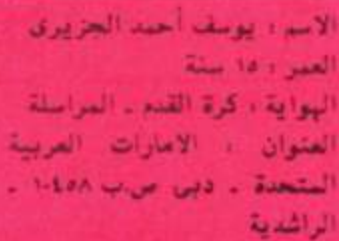 الاسم : يوسف أحمد الجزيرى
العمر : ١٥ سنة
الهواية : كرة القدم ـ المراسلة
العنوان : الامارات العربية
المتحدة ـ دبى ص.ب ١٠٤٥٨ ـ
الراشدية